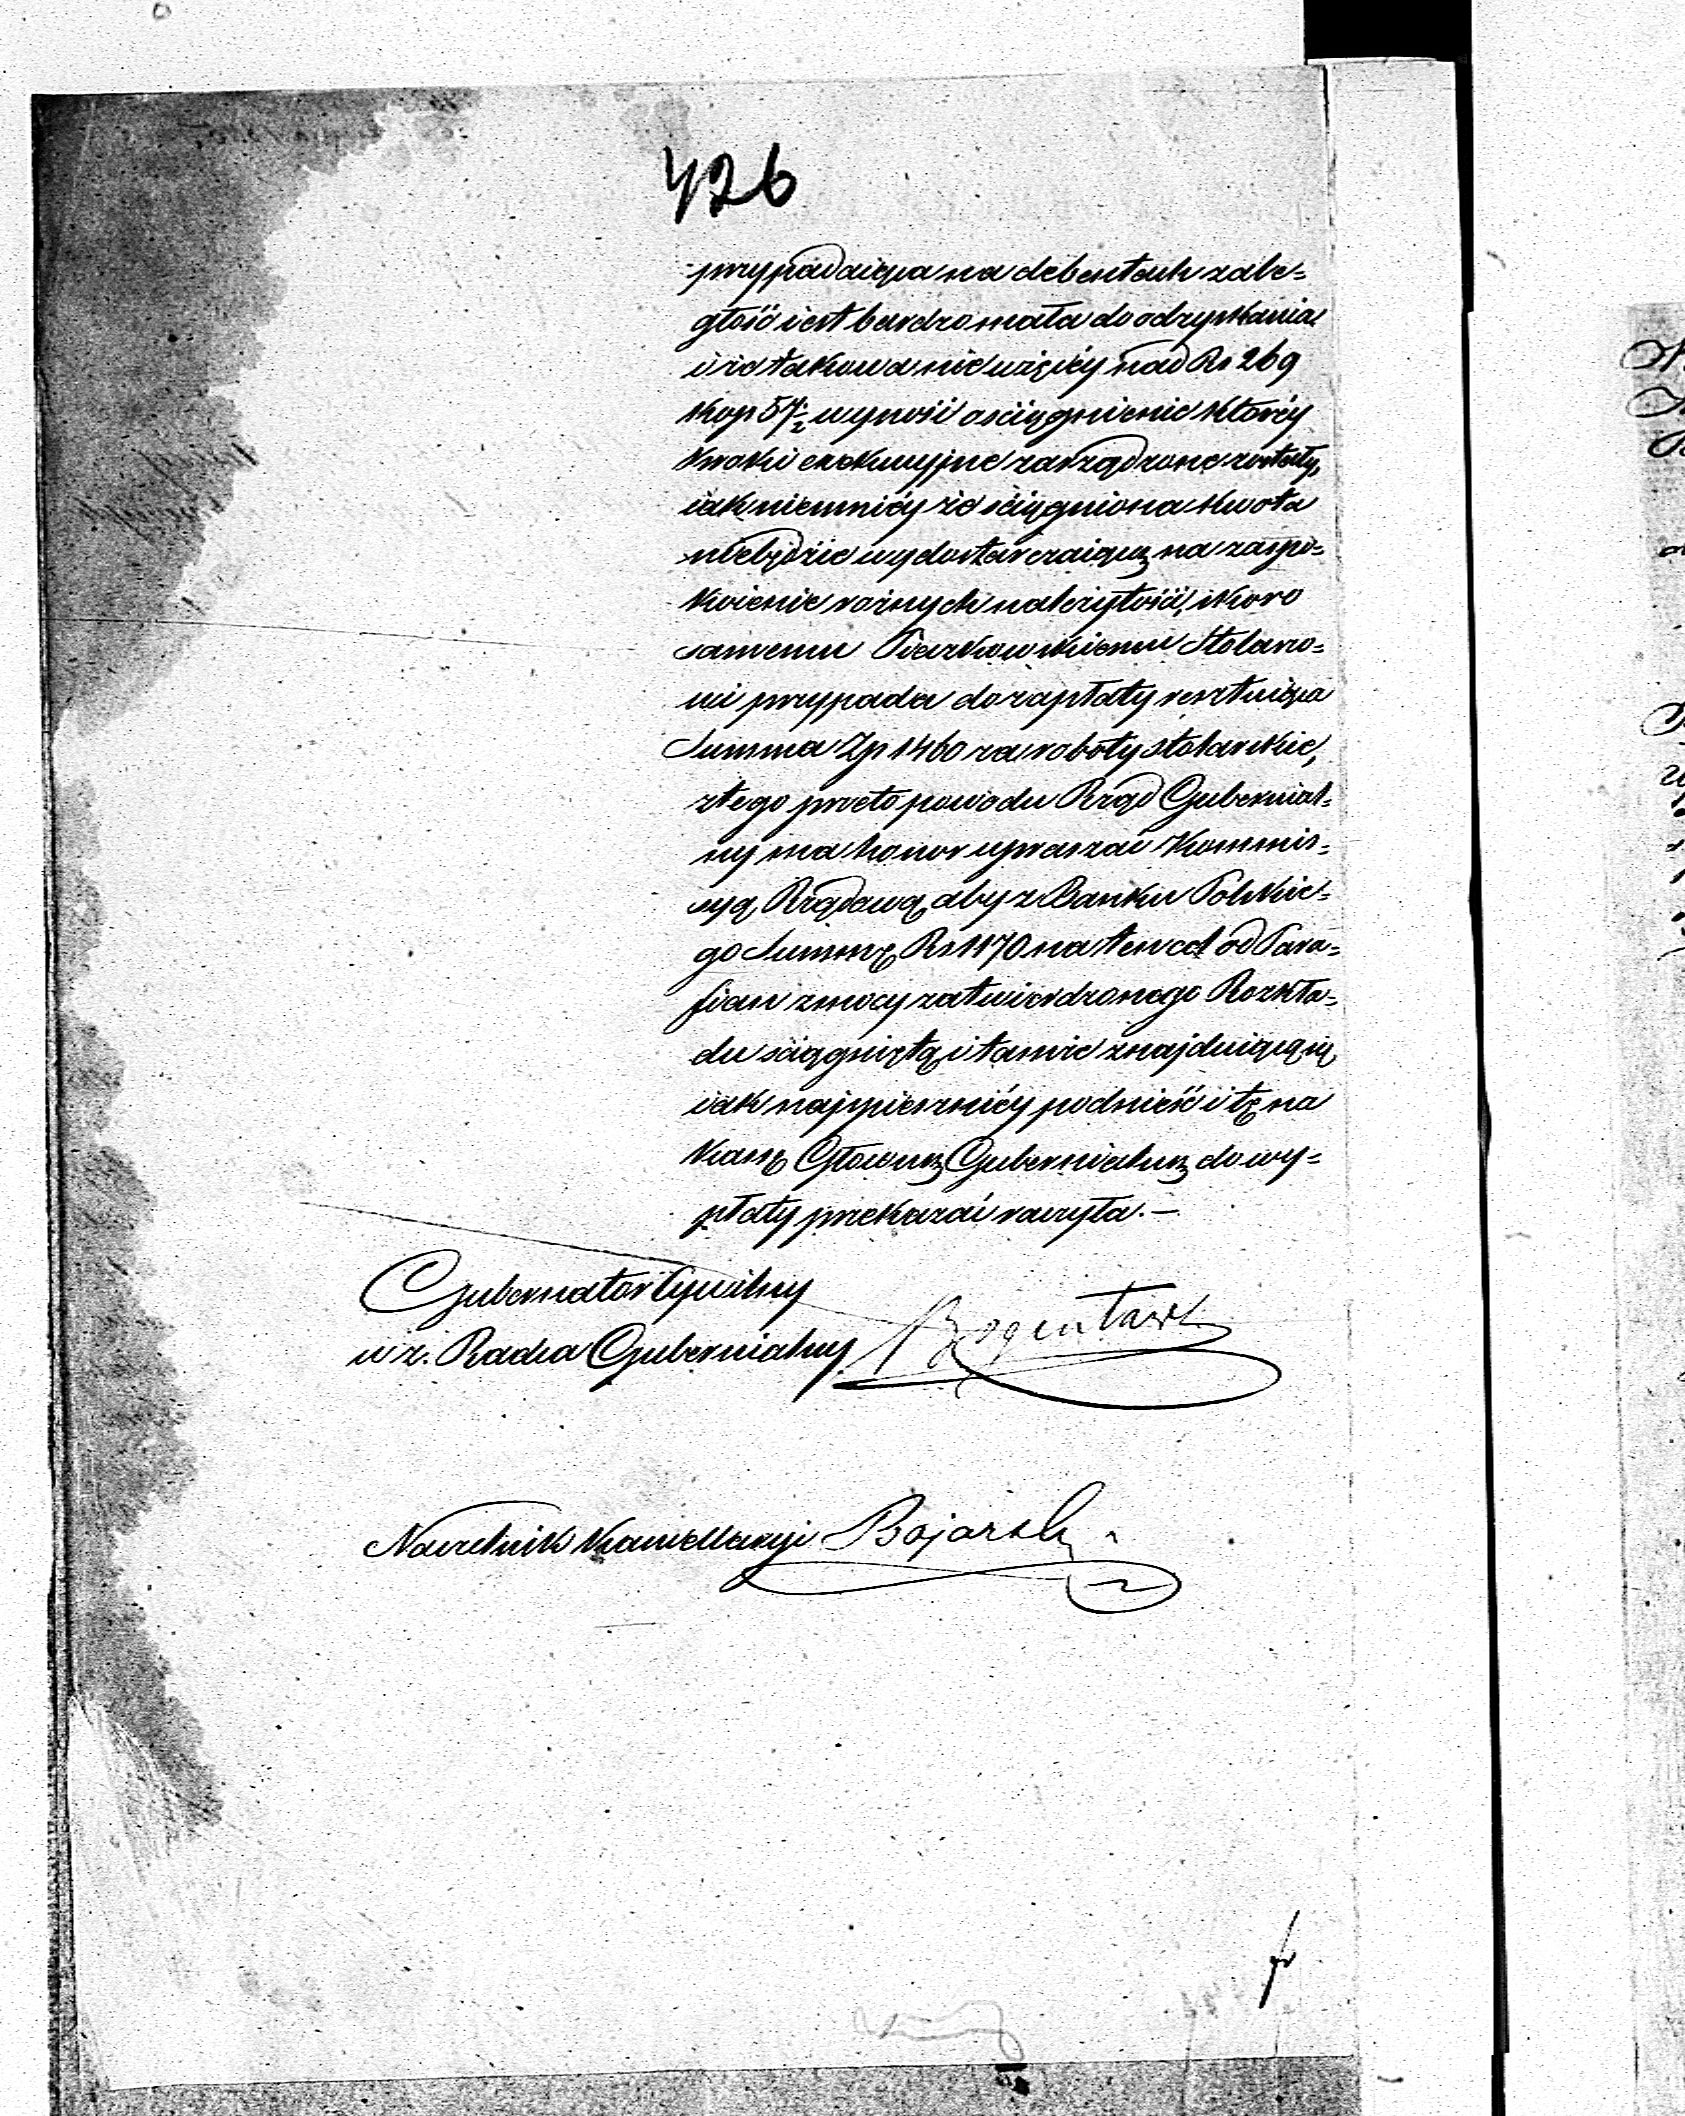 426
przypadaiąca na debentach zale=
głość iest bardzo mała do odzyskania
i że takowa nie więcéy nad Rs 269
kop 57½ wynosi o ściągnienie któréy
kroki exekucyjne zarządzone zostały,
iak niemniéy że ściągniona kwota
niebędzie wydostarczaiącą na zaspo=
koienie rożnych należytości, skoro
samemu Stolarzo=
wi przypada do zapłaty resztuiąca
Summa Zp 1460 za roboty stolarskie,
z tego przeto powodu Rząd Gubernial=
ny ma honor upraszać Kommis=
syą Rządową, aby z Banku Polskie=
go Summę Rs 1170 na ten cel od Para=
fian z mocy zatwierdzonego Rozkła=
du ściągniętą i tamże znajduiącą się
iak najspieszniéy podnieść i tę na
Kassę Główną Gubernialną do wy=
płaty przekazać raczyła. —
Gubernator Cywilny
w z. Radca Gubernialny
Naczelnik Kancellaryi Bojarski